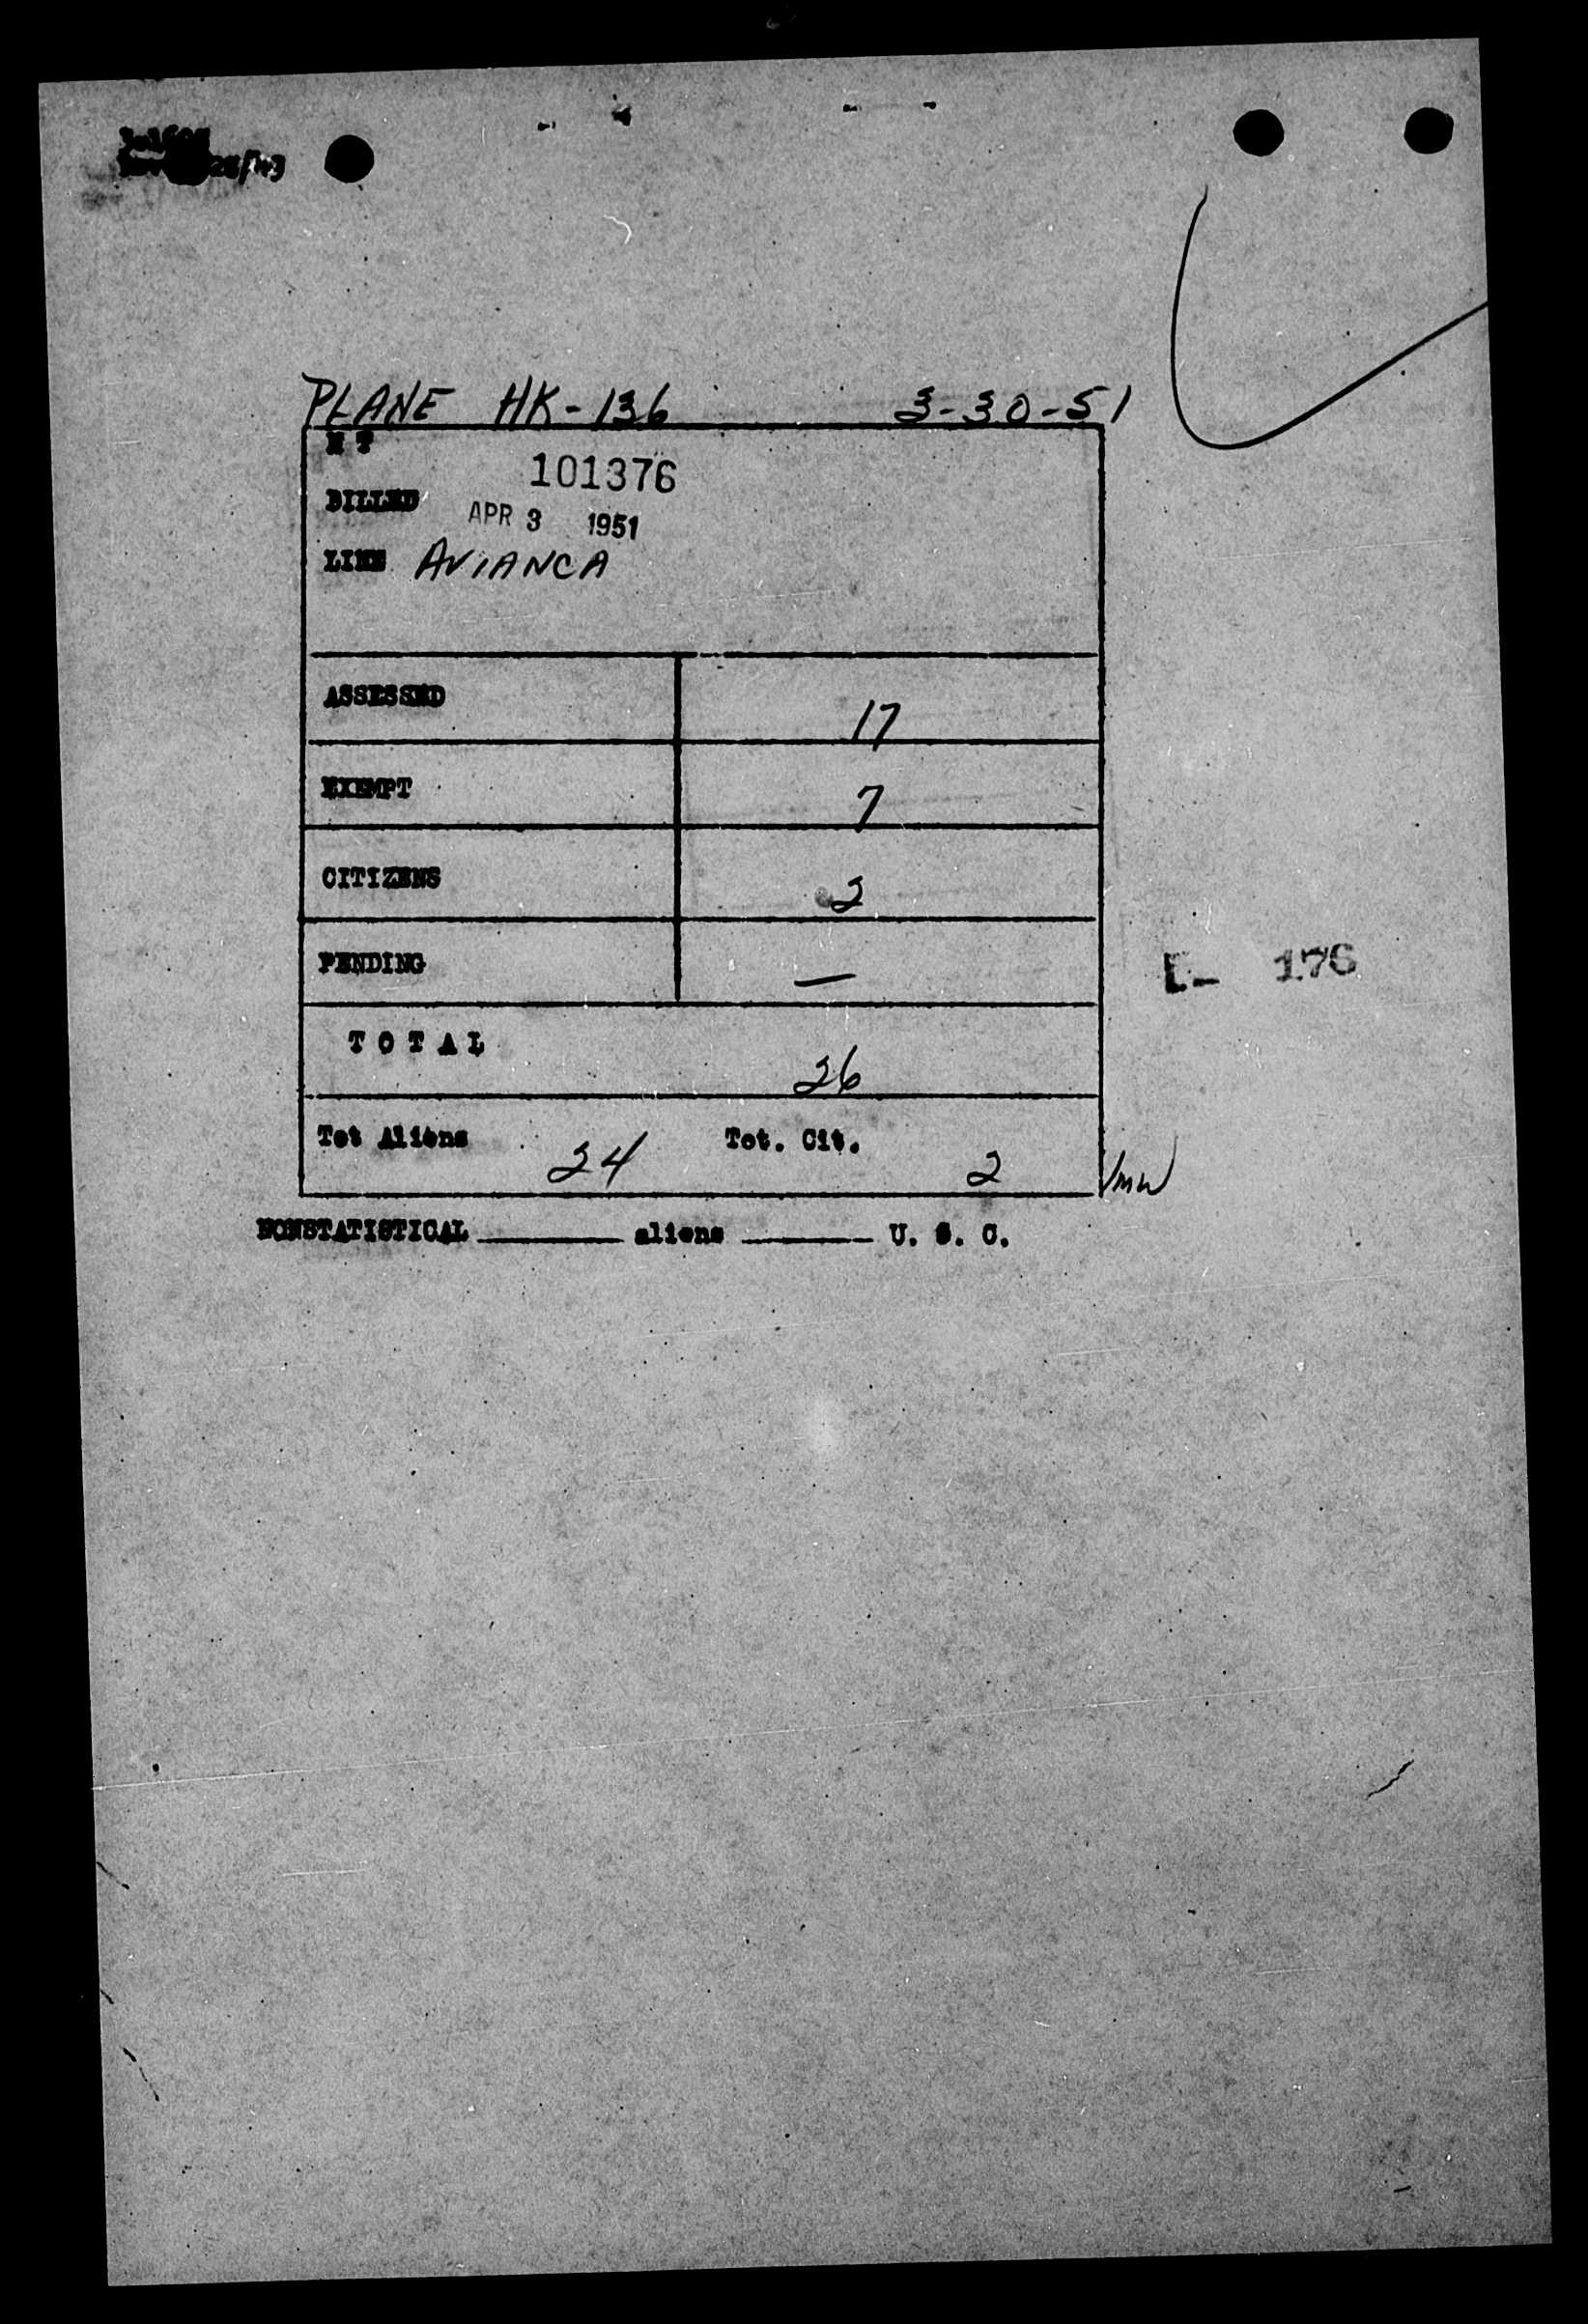 PLANE HK-136 3-30-51
M T
101376
BILLED APR 3 1951
LINE AVIANCA
ASSESSED 17
EXEMPT 7
CITIZENS 2
PENDING —
T O T A L 26
Tot Aliens 24 Tot. Cit. 2
NONSTATISTICAL ______ aliens ______ U. S. C.
176